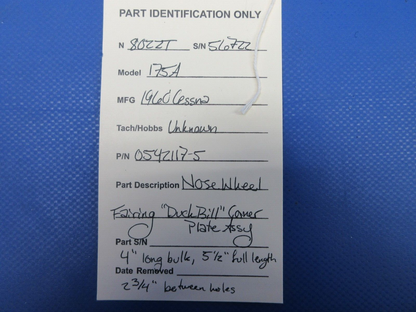 PART IDENTIFICATION ONLY
N 8022T S/N 56722
Model 175A
MFG 1960 Cessna
Tach/Hobbs Unknown
P/N 0542117-5
Part Description Nose Wheel
Fairing "Duck Bill" Corner
Plate Assy
Part S/N
4" long bulk, 5 1/2" full length
Date Removed
2 3/4" between holes